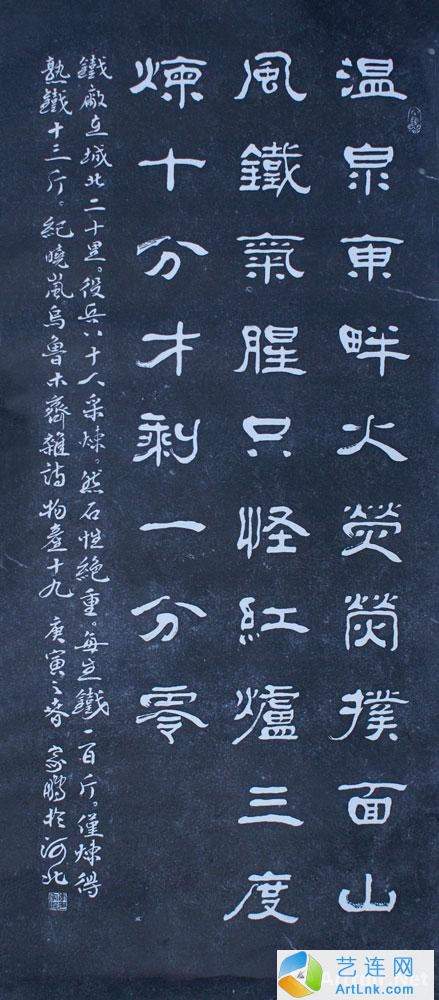 温泉東畔火熒熒撲面山
風鐵氣腥只怪紅爐三度
煉十分才剩一分零
鐵廠在城北二十里。役兵八十人采煉。然石性絕重。每生鐵一百斤。僅煉得
熟鐵十三斤。紀曉嵐烏魯木齊雜詩物產十九 庚寅之春 家鵬於河北
艺连网
ArtLnk.com